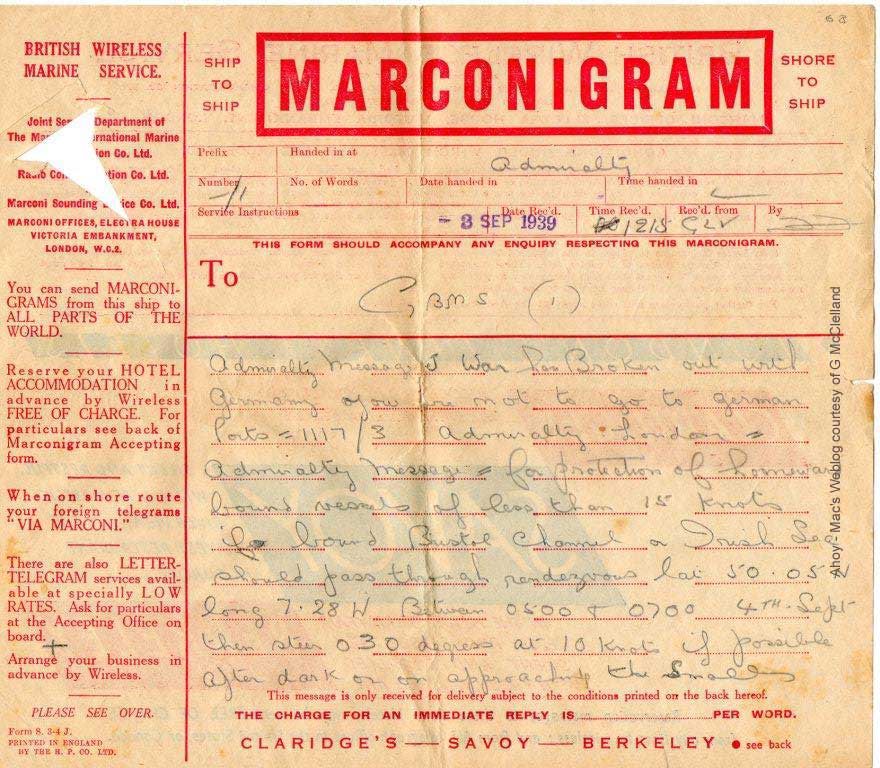 68
BRITISH WIRELESS
MARINE SERVICE.
Joint Ser Department of
The Mar ernational Marine
ion Co. Ltd.
Radio Com ation Co. Ltd.
Marconi Sounding ice Co. Ltd.
MARCONI OFFICES, ELECTRA HOUSE
VICTORIA EMBANKMENT,
LONDON, W.C.2.
You can send MARCONI-
GRAMS from this ship to
ALL PARTS OF THE
WORLD.
Reserve your HOTEL
ACCOMMODATION in
advance by Wireless
FREE OF CHARGE. For
particulars see back of
Marconigram Accepting
form.
When on shore route
your foreign telegrams
"VIA MARCONI."
There are also LETTER-
TELEGRAM services avail-
able at specially LOW
RATES. Ask for particulars
at the Accepting Office on
board.
Arrange your business in
advance by Wireless.
PLEASE SEE OVER.
Form S. 3-4 J.
PRINTED IN ENGLAND
BY THE H. P. CO. LTD.
SHIP
TO
SHIP
MARCONIGRAM
SHORE
TO
SHIP
Prefix Handed in at Admiralty
Number No. of Words Date handed in Time handed in
Service Instructions Date Rec'd. Time Rec'd. Rec'd. from By
- 3 SEP 1939 1215 GLV
THIS FORM SHOULD ACCOMPANY ANY ENQUIRY RESPECTING THIS MARCONIGRAM.
To
GBMS (1)
Admiralty Message War has Broken out with
Germany you are not to go to German
Ports = 1117/3 Admiralty London =
Admiralty Message = for protection of homeward
bound vessels of less than 15 knots
bound Bristol Channel or Irish Sea
should pass through rendezvous lat 50.05 N
long 7.28 W Between 0500 & 0700 4TH. Sept
then steer 030 degress at 10 knots if possible
after dark or on approaching the Smalls
This message is only received for delivery subject to the conditions printed on the back hereof.
THE CHARGE FOR AN IMMEDIATE REPLY IS PER WORD.
CLARIDGE'S — SAVOY — BERKELEY ● see back
Ahoy - Mac's Weblog courtesy of G McClelland